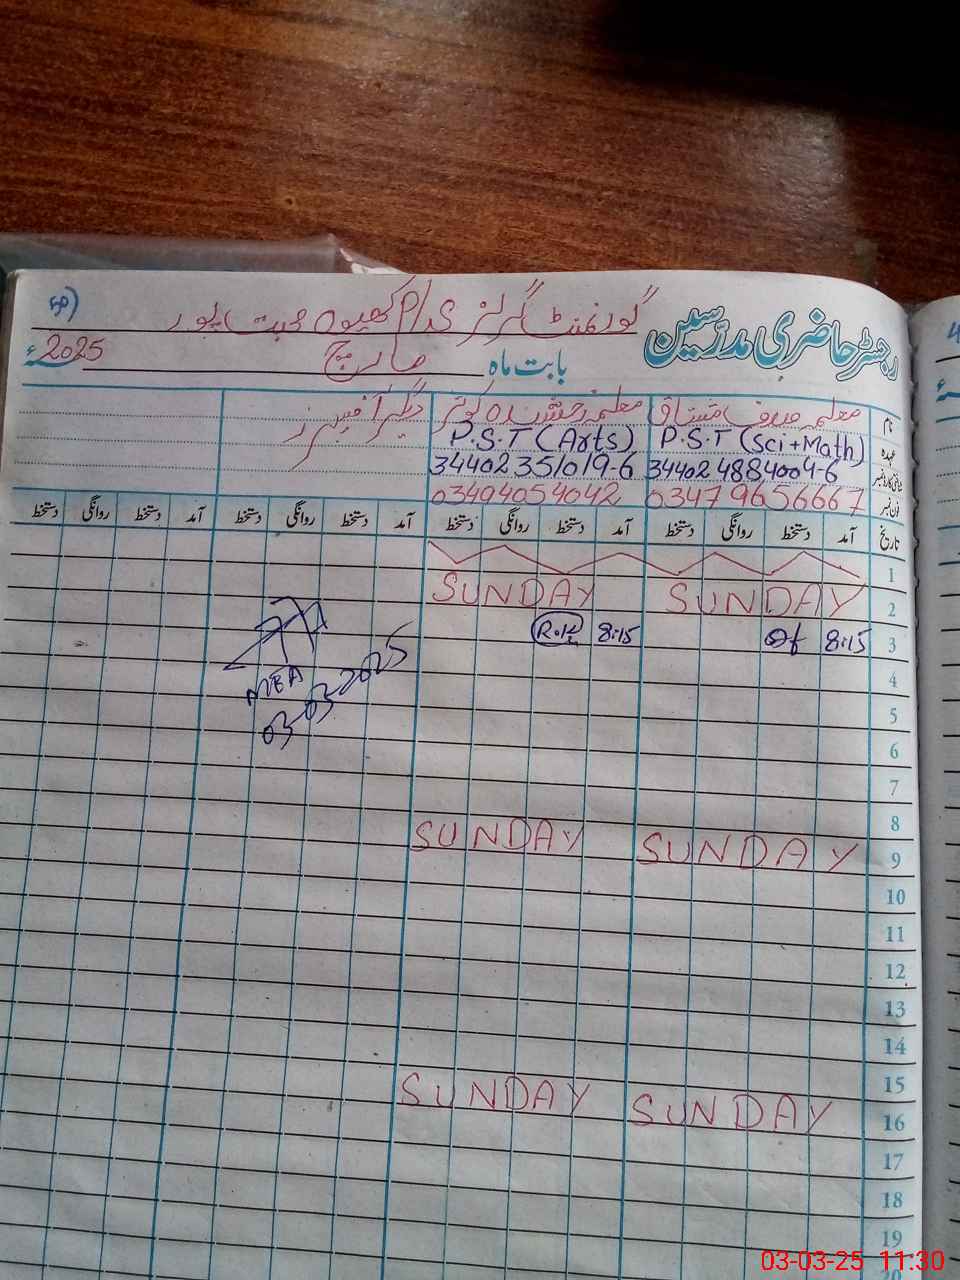 رجسٹر حاضری مدرسین
گورنمنٹ گرلز P/S کھیوہ محبت پور
بابت ماہ مارچ 2025ء
نام معلمہ مشتاق معلمہ رخشندہ کوثر دیگر آفیسرز
عہدہ P.S.T (Sci+Math) P.S.T (Arts)
شناختی کارڈ نمبر 34402 4884004-6 34402 351019-6
فون نمبر 03479656667 03494054042
تاریخ آمد دستخط روانگی دستخط آمد دستخط روانگی دستخط آمد دستخط روانگی دستخط آمد دستخط روانگی دستخط
1
2 SUNDAY SUNDAY
3 8:15 8:15
4
MEA
5
03-03-2025
6
7
8
9 SUNDAY SUNDAY
10
11
12
13
14
15
16 SUNDAY SUNDAY
17
18
19
20
03-03-25 11:30